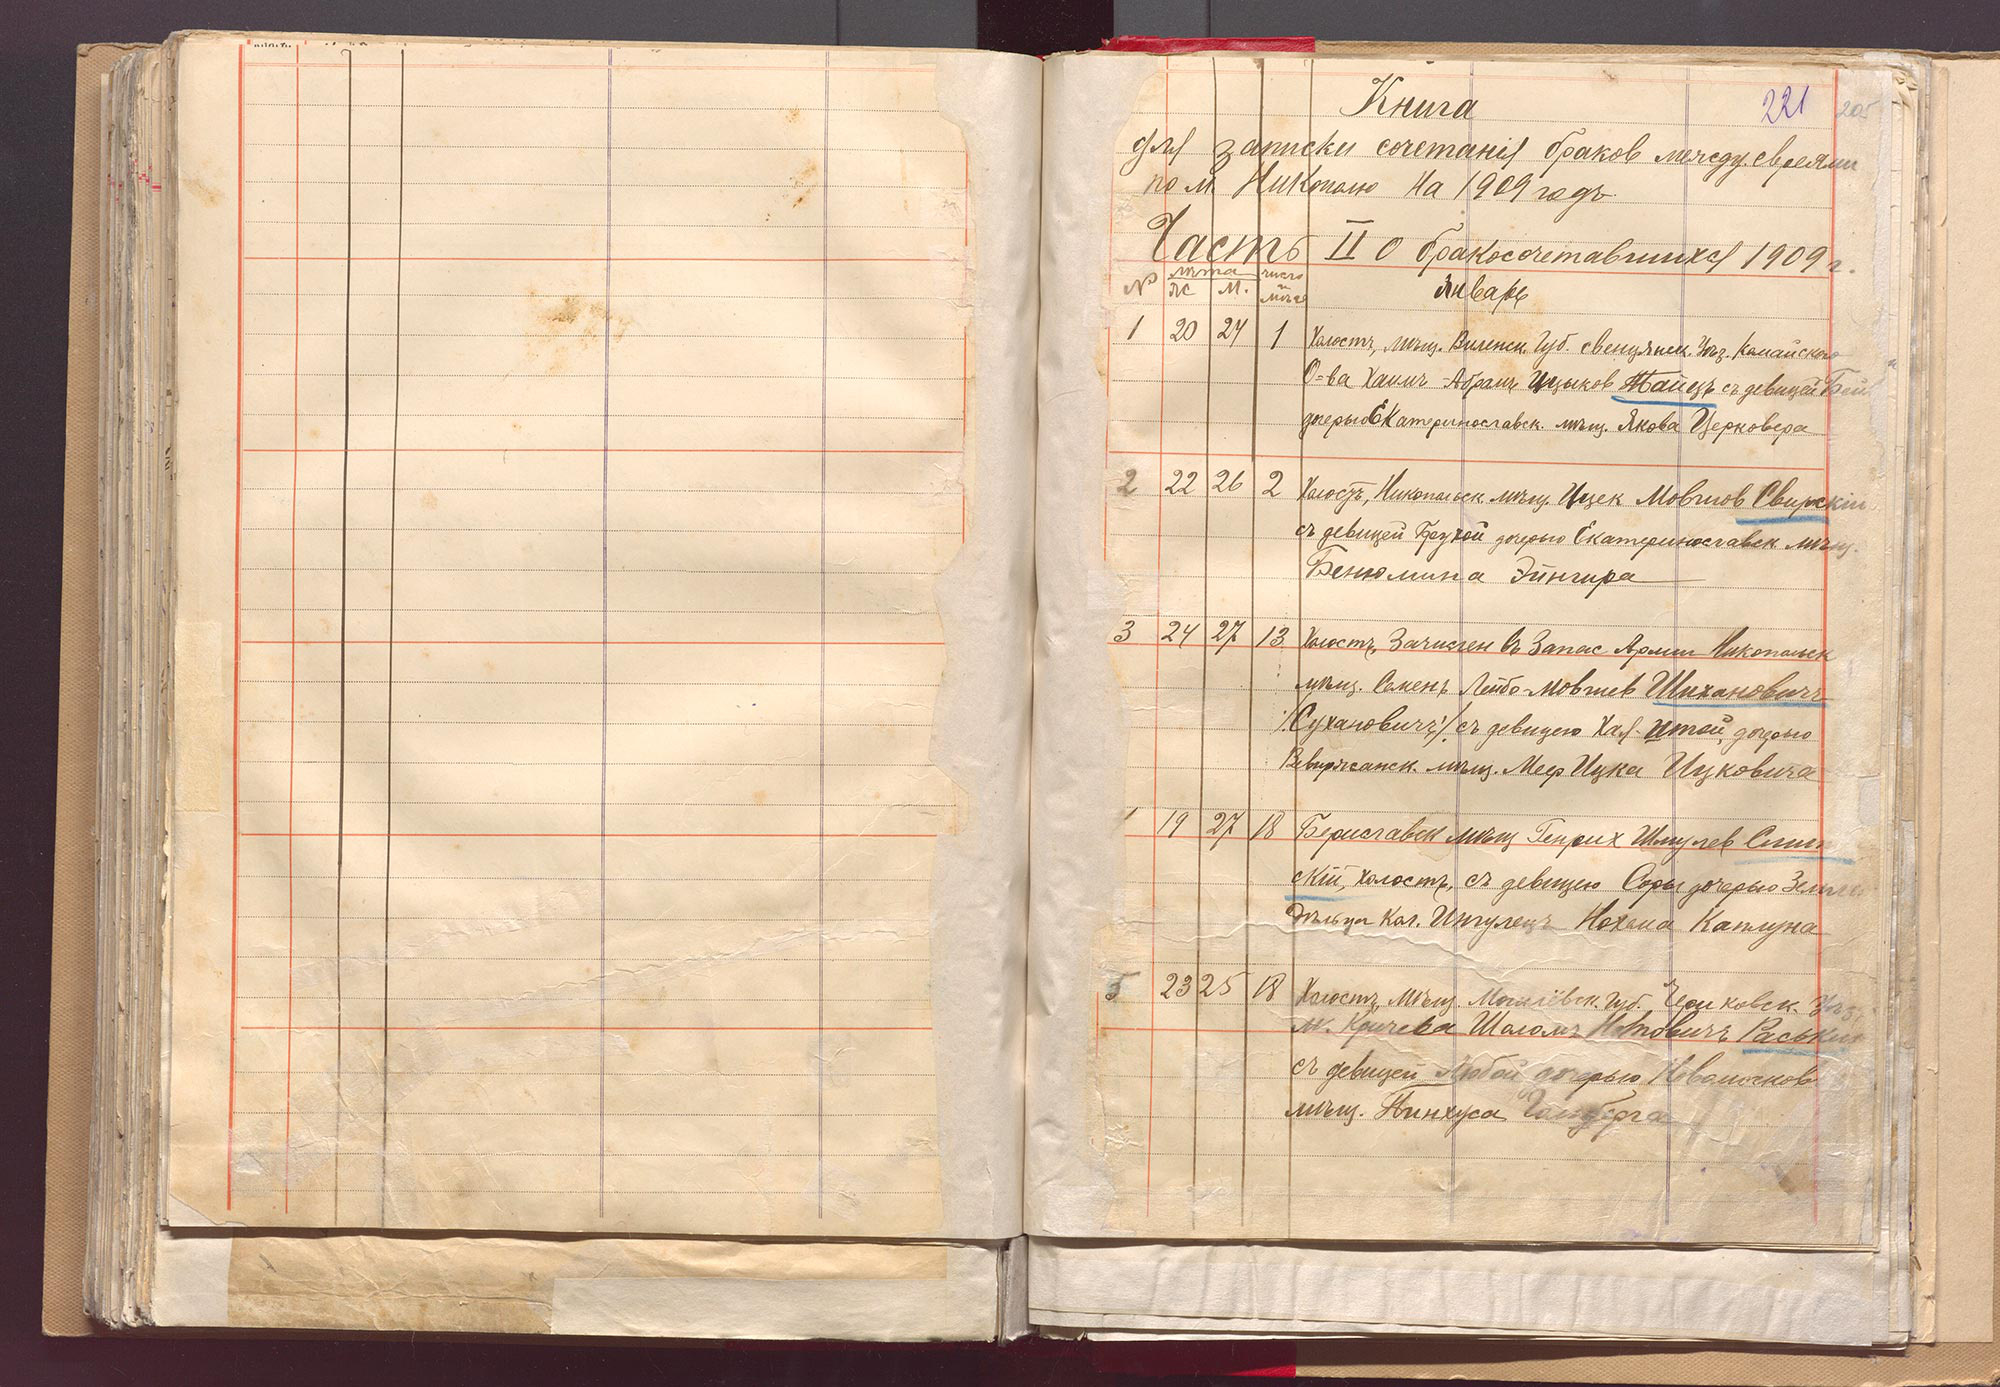 221 205
Книга
для записки сочетанія браков между евреями
по м. Никополю на 1909 годъ
Часть II о бракосочетавшихся 1909 г.
№ лѣта число
Ж М. и мѣс.
Январь
1 20 24 1 Холостъ, мѣщ. Виленск. Губ. Свенцянск. Уѣз. Комайского
О-ва Хаимъ-Абрамъ Ицыков Тайцъ съ девицей
дочерью Екатеринославск. мѣщ. Якова Церковера
2 22 26 2 Холостъ, Никопольск. мѣщ. Ицек Мовшов Свирскій
съ девицей Брухой дочерью Екатеринославск. мѣщ.
Бенюмина Эйнгира
3 24 27 13 Холостъ, Зачислен въ Запас Армии Никопольск
мѣщ. Семенъ Лейбо-Мовшев Шихановичъ
/Сухановичъ/ съ девицею Хая-Итой, дочерью
мѣщ. Меер Ицка Ицковича
19 27 18 Бериславск мѣщ Генрих Шмулев
скій, холостъ, съ девицею Соры дочерью
дѣльца Кол. Ингулецъ Нохема Каплуна
5 23 25 18 Холостъ, мѣщ. Могилёвск. Губ. Чериковск. Уѣз.
м. Кричева Шоломъ Раськин
съ девицей Любой дочерью
мѣщ. Пинхуса